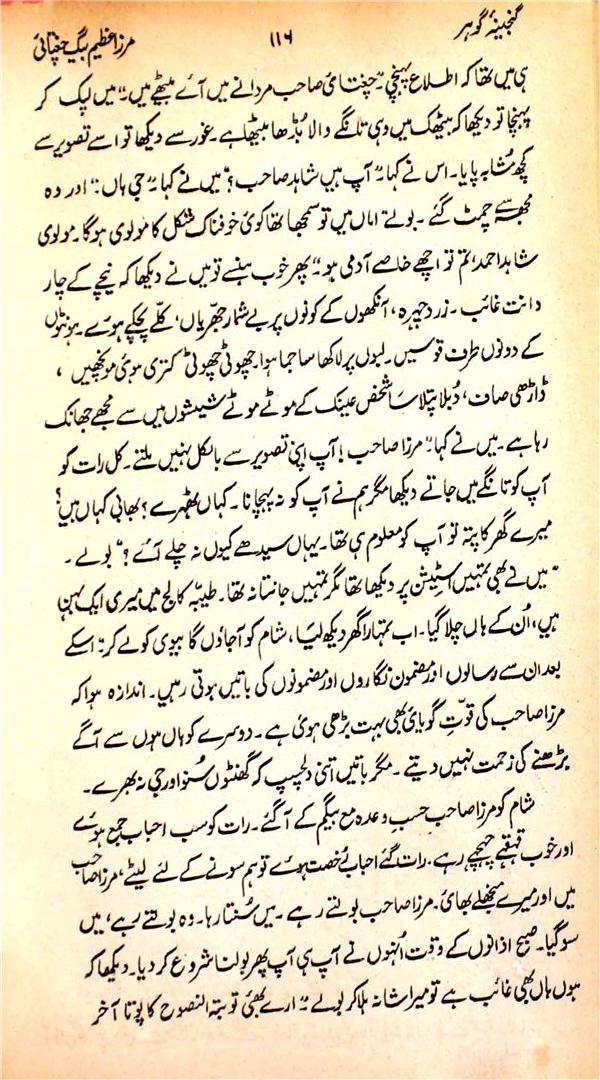 گنجینۂ گوہر ۱۱۶ مرزا عظیم بیگ چغتائی
ہی میں تھا کہ اطلاع پہنچی۔ "چغتائی صاحب مردانے میں آئے بیٹھے ہیں۔" میں لپک کر
پہنچا تو دیکھا کہ بیٹھک میں وہی تانگے والا بڈھا بیٹھا ہے۔ غور سے دیکھا تو اسے تصویر سے
کچھ مُشابہ پایا۔ اس نے کہا۔ "آپ ہیں شاہد صاحب؟" میں نے کہا۔ "جی ہاں۔" اور وہ
مجھ سے چمٹ گئے۔ بولے اماں میں تو سمجھا تھا کوئی خوفناک شکل کا مولوی ہوگا۔ مولوی
شاہد احمد، تم تو اچھے خاصے آدمی ہو۔" پھر خوب ہنسے تو میں نے دیکھا کہ نیچے کے چار
دانت غائب۔ زرد چہرہ، آنکھوں کے کونوں پر بے شمار جھریاں، کلّے پچکے ہوئے۔ ہونٹوں
کے دونوں طرف قوسیں۔ لبوں پر لاکھا سا جما ہوا۔ چھوٹی چھوٹی کتری ہوئی مونچھیں،
ڈاڑھی صاف، دُبلا پتلا سا شخص عینک کے موٹے موٹے شیشوں میں سے مجھے جھانک
رہا ہے۔ میں نے کہا۔ "مرزا صاحب! آپ اپنی تصویر سے بالکل نہیں ملتے۔ کل رات کو
آپ کو تانگے میں جاتے دیکھا مگر ہم نے آپ کو نہ پہچانا۔ کہاں ٹھہرے؟ بھابی کہاں ہیں؟
میرے گھر کا پتہ تو آپ کو معلوم ہی تھا۔ یہاں سیدھے کیوں نہ چلے آئے؟" بولے۔
"میں نے بھی تمہیں اسٹیشن پر دیکھا تھا مگر تمہیں جانتا نہ تھا۔ طیبہ کالج میں میری ایک بہن
ہیں، اُن کے ہاں چلا گیا۔ اب تمہارا گھر دیکھ لیا، شام کو آجاؤں گا بیوی کو لے کر۔" اسکے
بعد ان سے رسالوں اور مضمون نگاروں اور مضمونوں کی باتیں ہوتی رہیں۔ اندازہ ہوا کہ
مرزا صاحب کی قوّتِ گویائی بھی بہت بڑھی ہوئی ہے۔ دوسرے کو ہاں ہوں سے آگے
بڑھنے کی زحمت نہیں دیتے۔ مگر باتیں اتنی دلچسپ کہ گھنٹوں سنو اور جی نہ بھرے۔
شام کو مرزا صاحب حسبِ وعدہ مع بیگم کے آگئے۔ رات کو سب احباب جمع ہوئے
اور خوب قہقہے چہچہے رہے۔ رات گئے احباب رُخصت ہوئے تو ہم سونے کے لئے لیٹے، مرزا صاحب
میں اور میرے منجھلے بھائی۔ مرزا صاحب بولتے رہے۔ میں سُنتا رہا۔ وہ بولتے رہے، میں
سو گیا۔ صبح اذانوں کے وقت اُنہوں نے آپ ہی آپ پھر بولنا شروع کر دیا۔ دیکھا کہ
ہوں ہاں بھی غائب ہے تو میرا شانہ ہلا کر بولے۔ "ارے بھئی توبتہ النصوح کا پوتا آخر